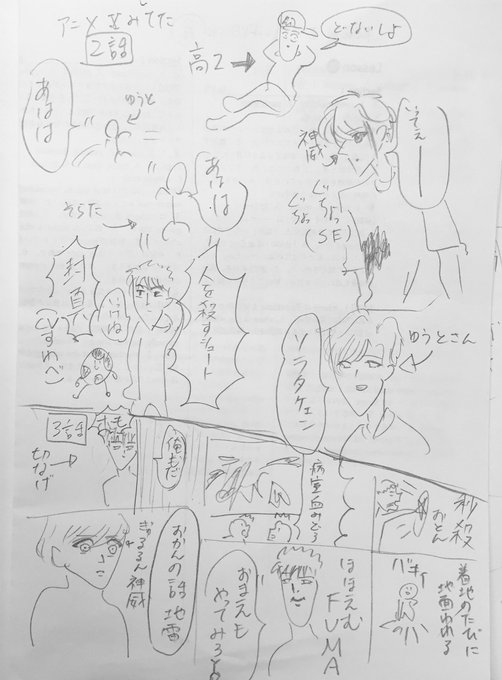 アニメXみてた
2話
高2
どないしよ
うえぇーー
神威
ぐちょっ
ぐちょっ
(SE)
ゆうと
あはは
あはは
そらた
人を殺すシュート
封真
(CVすわべ)
ゆうとさん
ソラタクェン
3話
切なげ
俺もだ
病室血みどろ
秒殺
おとん
着地のたびに
地面われる
バキィ
ほほえむ
FUMA
おまえも
やってみろよ
おかんの話地雷
ぎゅるるん神威